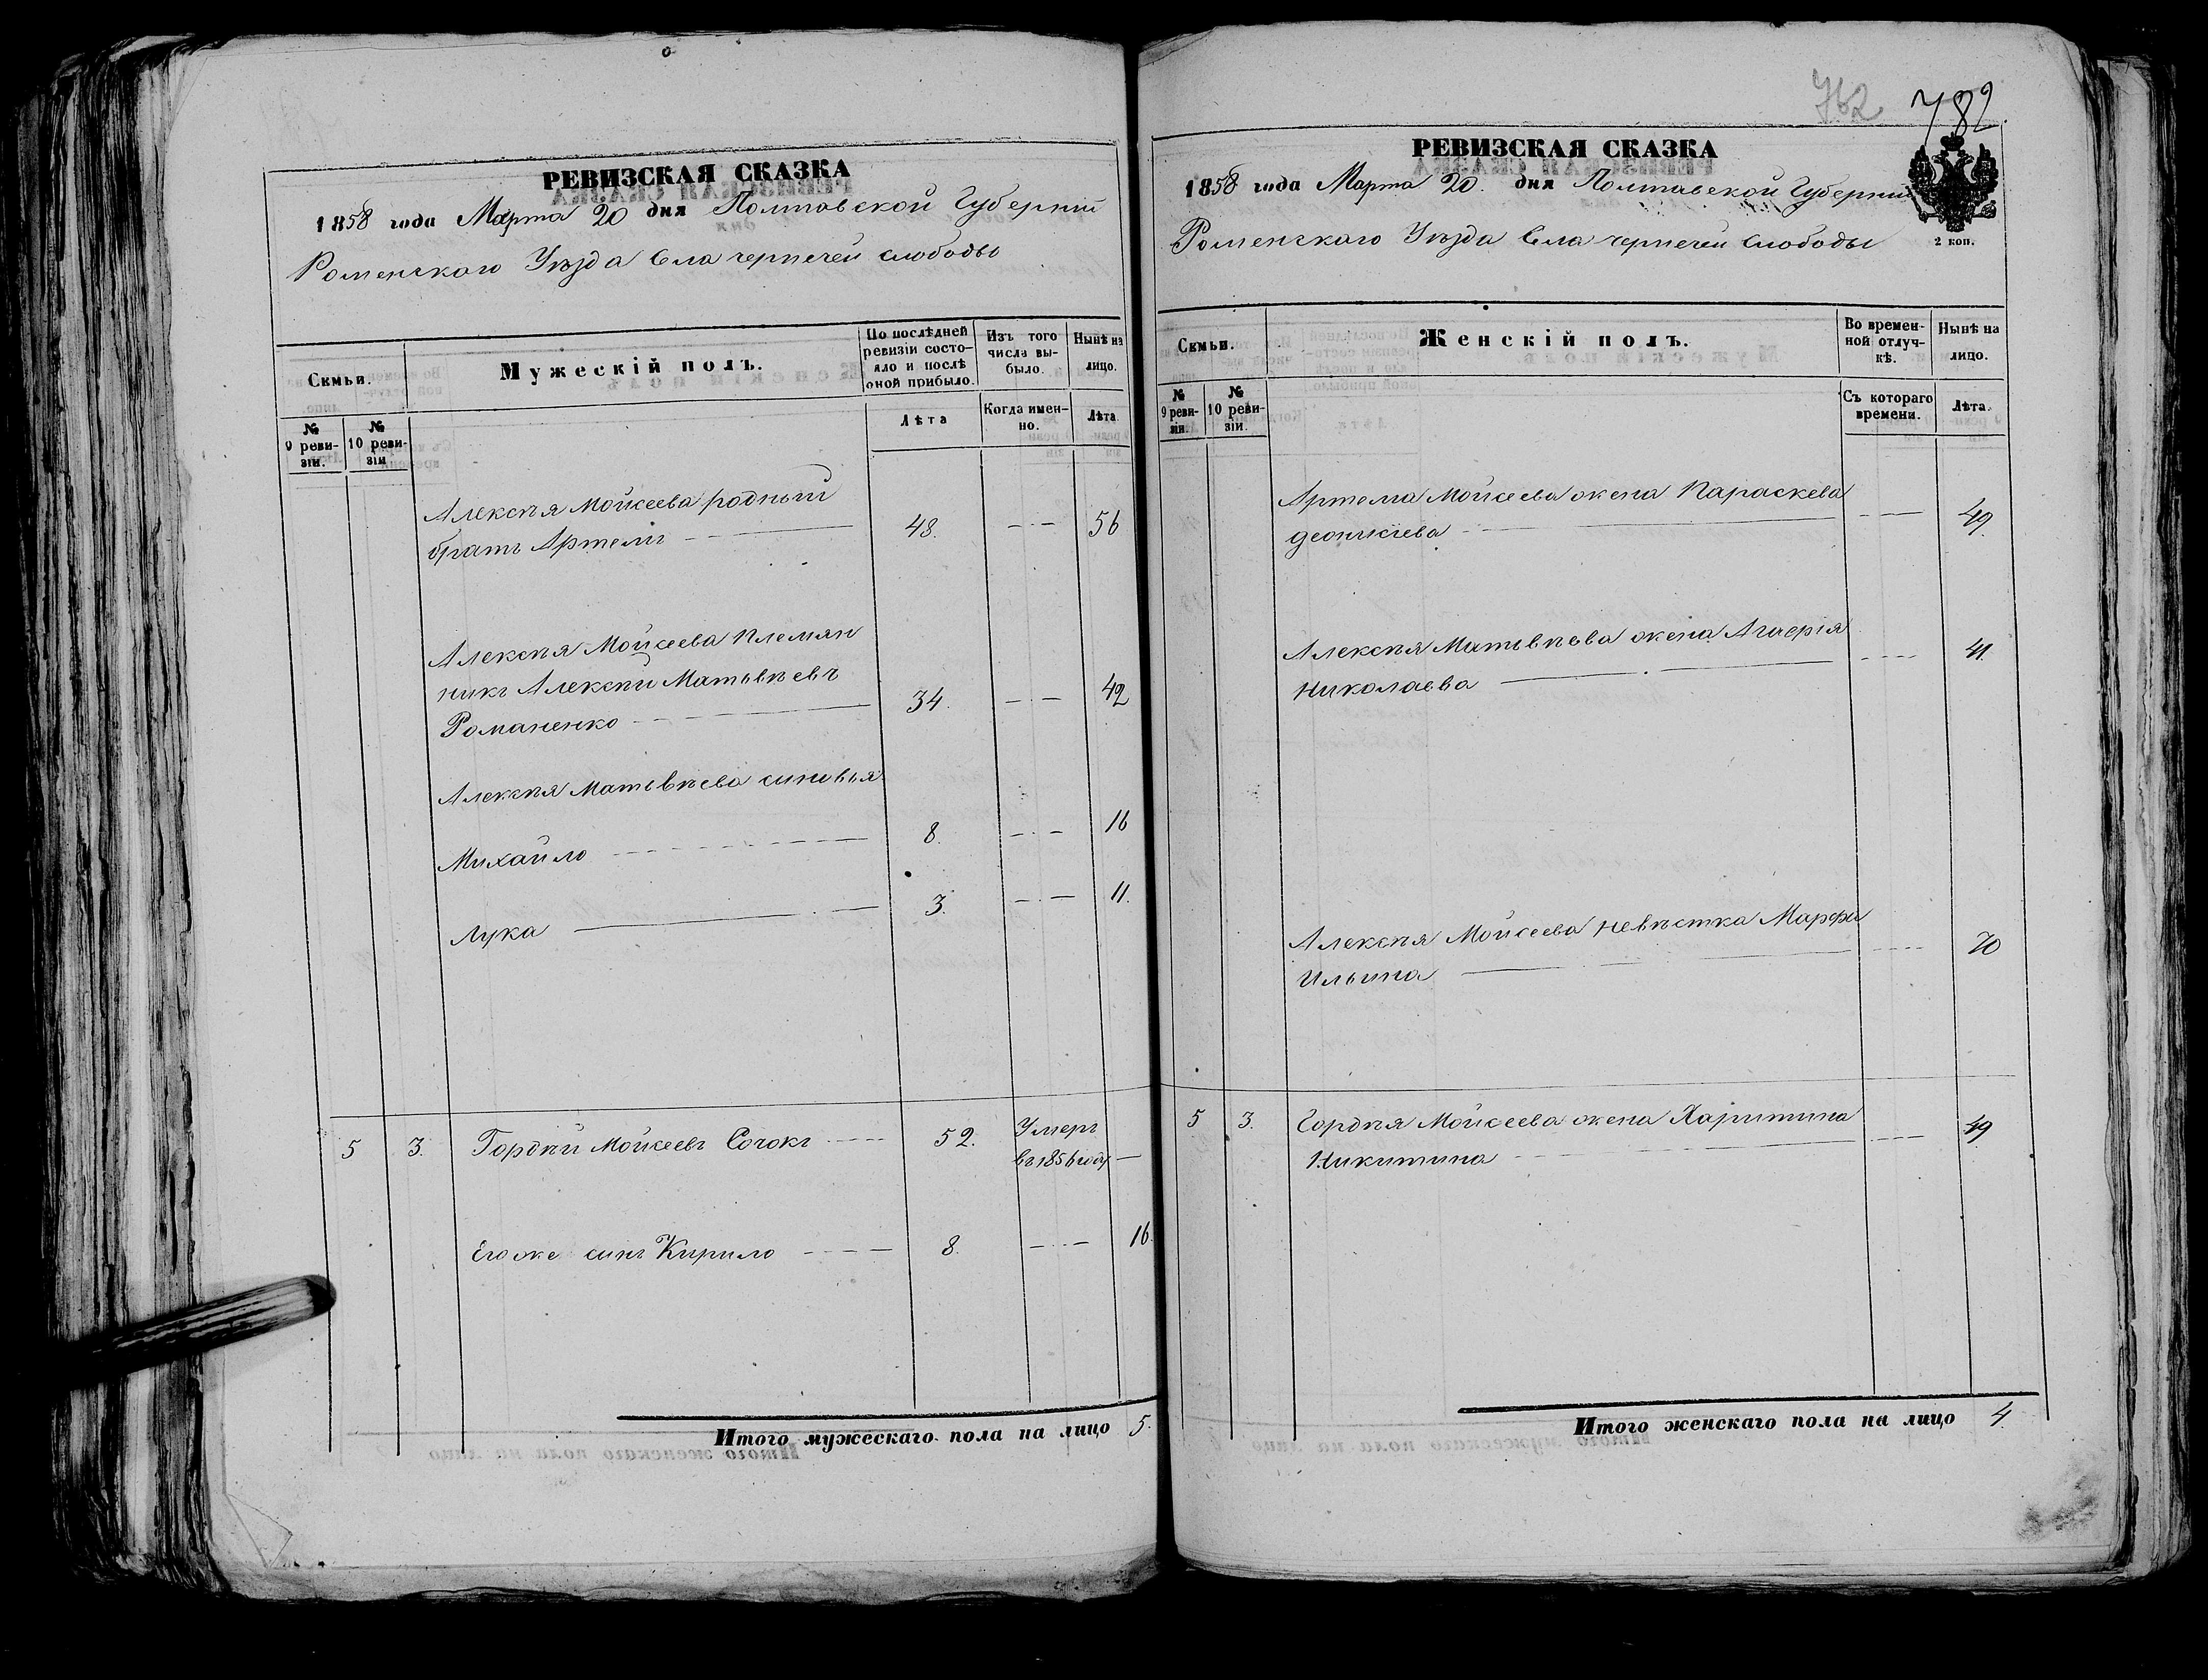 РЕВИЗСКАЯ СКАЗКА
1858 года Марта 20 дня Полтавской Губерніи
Роменскаго Уѣзда Села чернечей слободы
Семьи.
Мужескій полъ.
По послѣдней ревизіи состояло и послѣ оной прибыло.
Изъ того числа выбыло.
Нынѣ на лицо.
№ 9 ревизіи.
№ 10 ревизіи
Лѣта
Когда именно.
Лѣта
Алексѣя Мойсеева родный
братъ Артемъ 48. 56
Алексѣя Мойсеева племян
никъ Алексѣй Матвѣевъ
Романенко 34. 42
Алексѣя Матвѣева синовья
Михайло 8. 16
Лука 3. 11.
5 3. Гордѣй Мойсеевъ Сочокъ 52. Умеръ
въ 1856 году —
Его же синъ Кирило 8. 16.
Итого мужескаго пола на лицо 5.
762 782
РЕВИЗСКАЯ СКАЗКА
1858 года Марта 20. дня Полтавской Губерніи
Роменскаго Уѣзда Села чернечей слободы
2 коп.
Семьи.
Женскій полъ.
Во временной отлучкѣ.
Нынѣ на лицо.
№ 9 ревизіи.
№ 10 ревизіи.
Съ котораго времени.
Лѣта.
Артема Мойсеева жена Параскева 49.
Алексѣя Матвѣева жена 41.
Николаева
Алексѣя Мойсеева невѣстка Марфа 70
Ильина
5 3. Гордѣя Мойсеева жена Харитина 49
Никитина
Итого женскаго пола на лицо 4